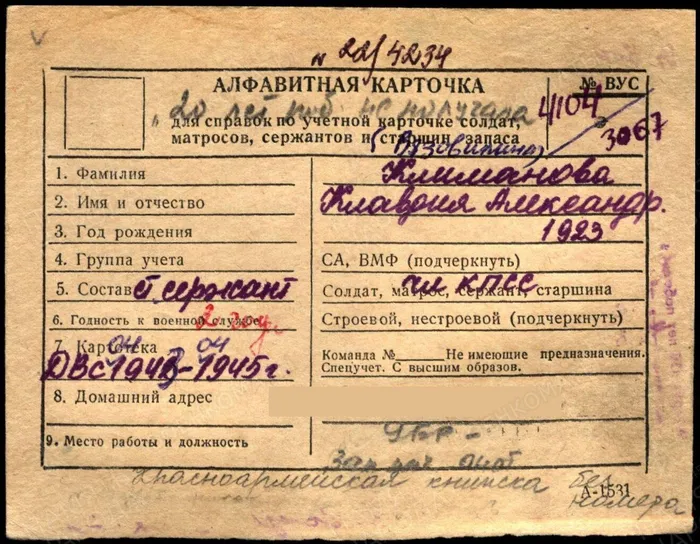 N 22/4234
АЛФАВИТНАЯ КАРТОЧКА
№ ВУС
"20 лет не получала
4/104
для справок по учетной карточке солдат,
3067
матросов, сержантов и старшин запаса
1. Фамилия
Климанова
2. Имя и отчество
Клавдия Александр.
3. Год рождения
1923
4. Группа учета
СА, ВМФ (подчеркнуть)
5. Состав ст сержант
чл КПСС
Солдат, матрос, сержант, старшина
6. Годность к военной службе
Строевой, нестроевой (подчеркнуть)
7. Картотека
04 04
ДВС 1943-1945г.
Команда №______ Не имеющие предназначения.
Спецучет. С высшим образов.
8. Домашний адрес
УБР -
9. Место работы и должность
Красноармейская книжка без номера
А-1531